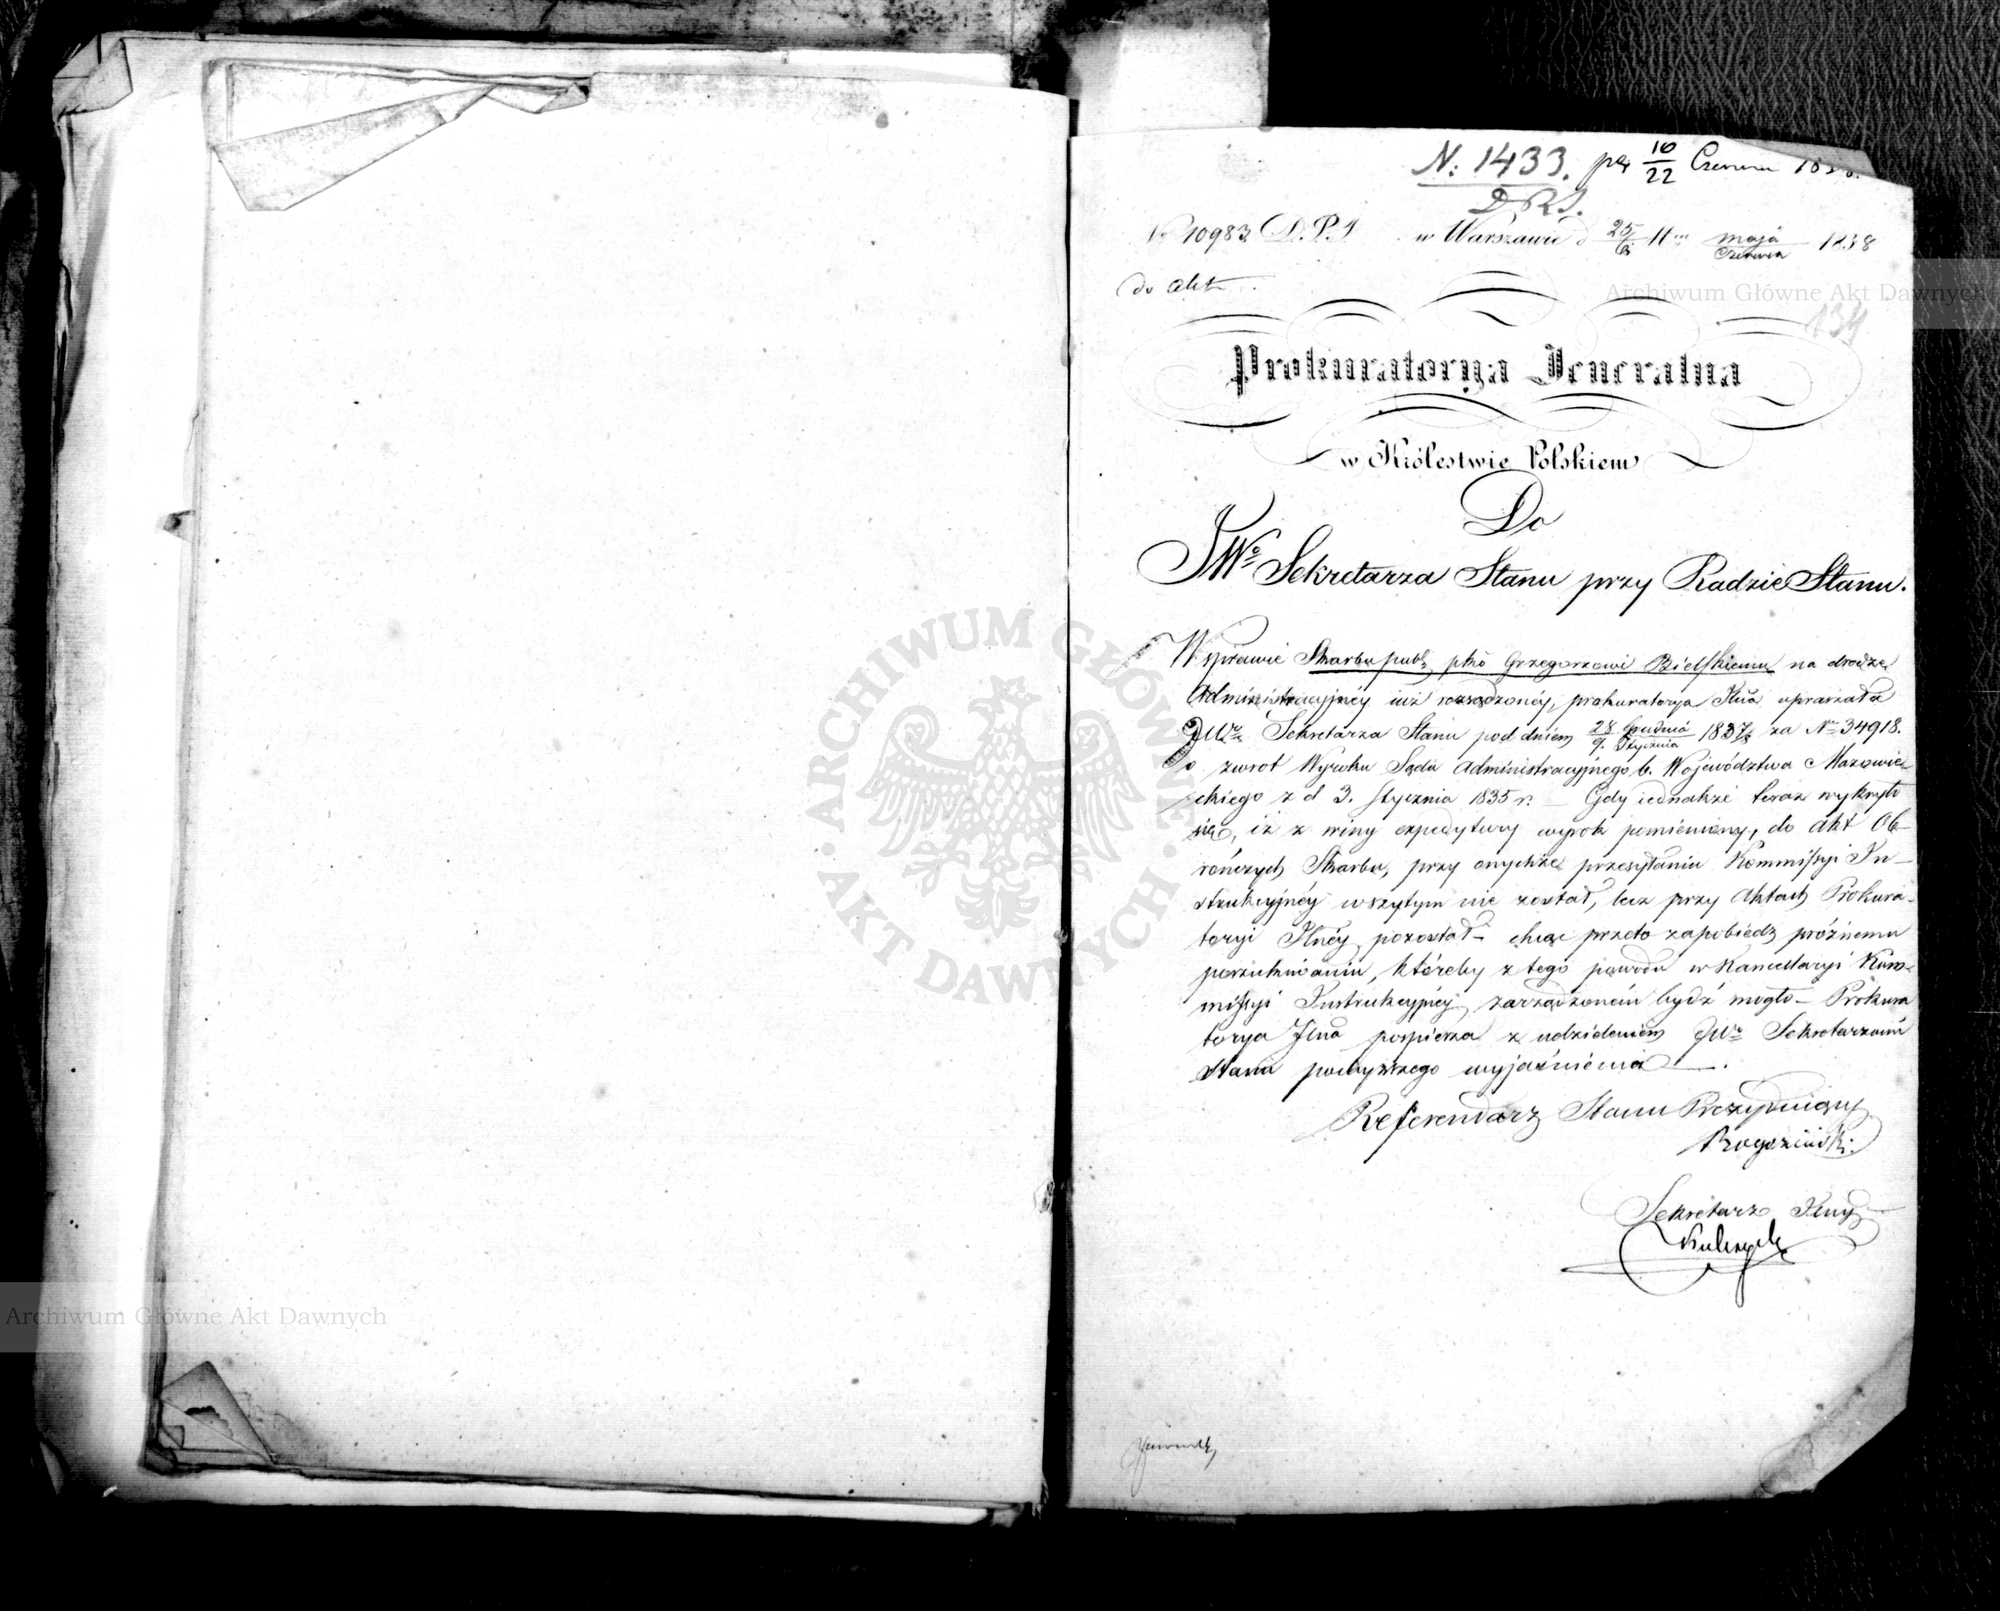 N: 1433. 10/22 Czerwca
N 10983 D.P.I w Warszawie d 25/6 Maja/Czerwca 1838
do akt
Archiwum Główne Akt Dawnych
134
Prokuratorya Jeneralna
w Królestwie Polskiem
Do
JWo Sekretarza Stanu przy Radzie Stanu.
W sprawie Skarbu publ. pko Grzegorzowi Bielskiemu na drodze
Administracyjnéy iuż rozsądzonéy, prokuratorya Jlna upraszała
JWo Sekretarza Stanu pod dniem 28 Grudnia/9. Stycznia 1837/8 za No 34918.
o zwrot Wyroku Sądu Administracyjnego b. Województwa Mazowie-
ckiego z d 3. Stycznia 1835 r. — Gdy iednakże teraz wykryło
się, iż z winy expedytury wyrok pomieniony, do Akt Ob-
rończych Skarbu, przy onychże przesyłaniu Kommissyi In-
strukcyjnéy wszytym nie został, lecz przy Aktach Prokura-
toryi Jlnéy pozostał — chcąc przeto zapobiedz próżnemu
poszukiwaniu, któreby z tego powodu w Kancellaryi Kom-
missyi Instrukcyjnéy zarządzoném bydź mogło — Prokura
torya Jlna pospiesza z udzieleniem JWo Sekretarzowi
Stanu powyższego wyjaśnienia — .
Referendarz Stanu Prezyduiący
Sekretarz Jlny
ARCHIWUM GŁÓWNE · AKT DAWNYCH ·
Archiwum Główne Akt Dawnych